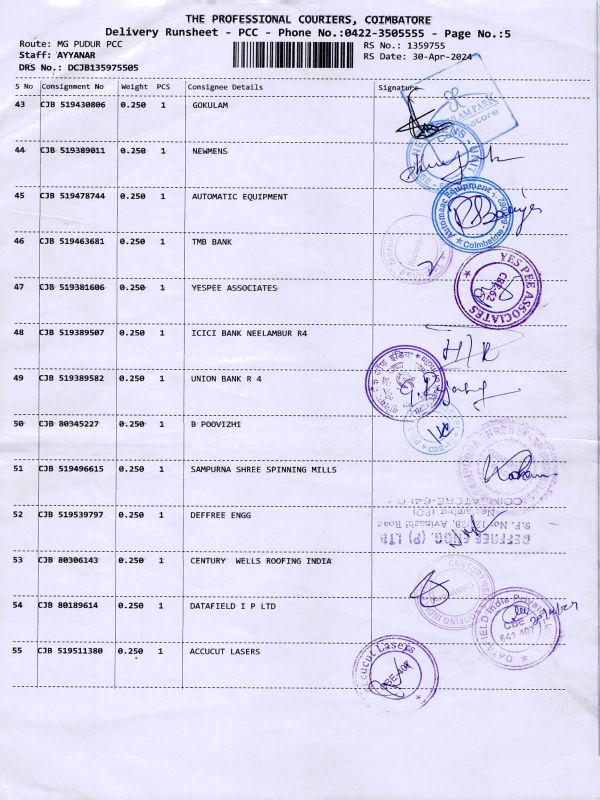 THE PROFESSIONAL COURIERS, COIMBATORE
Delivery Runsheet - PCC - Phone No.:0422-3505555 - Page No.:5
Route: MG PUDUR PCC RS No.: 1359755
Staff: AYYANAR RS Date: 30-Apr-2024
DRS No.: DCJB135975505
S No Consignment No Weight PCS Consignee Details Signature
43 CJB 519430806 0.250 1 GOKULAM
44 CJB 519389011 0.250 1 NEWMENS
45 CJB 519478744 0.250 1 AUTOMATIC EQUIPMENT
Automatic Equipment
Coimbatore
46 CJB 519463681 0.250 1 TMB BANK
47 CJB 519381606 0.250 1 YESPEE ASSOCIATES
YES PEE ASSOCIATES
CBE-62
48 CJB 519389507 0.250 1 ICICI BANK NEELAMBUR R4
49 CJB 519389582 0.250 1 UNION BANK R 4
50 CJB 80345227 0.250 1 B POOVIZHI
51 CJB 519496615 0.250 1 SAMPURNA SHREE SPINNING MILLS
52 CJB 519539797 0.250 1 DEFFREE ENGG
DEFFREE ENGG. (P) LTD
Neelambur (PO)
53 CJB 80306143 0.250 1 CENTURY WELLS ROOFING INDIA
54 CJB 80189614 0.250 1 DATAFIELD I P LTD
DATAFIELD India Private
CBE
641 407
55 CJB 519511380 0.250 1 ACCUCUT LASERS
Accucut Lasers